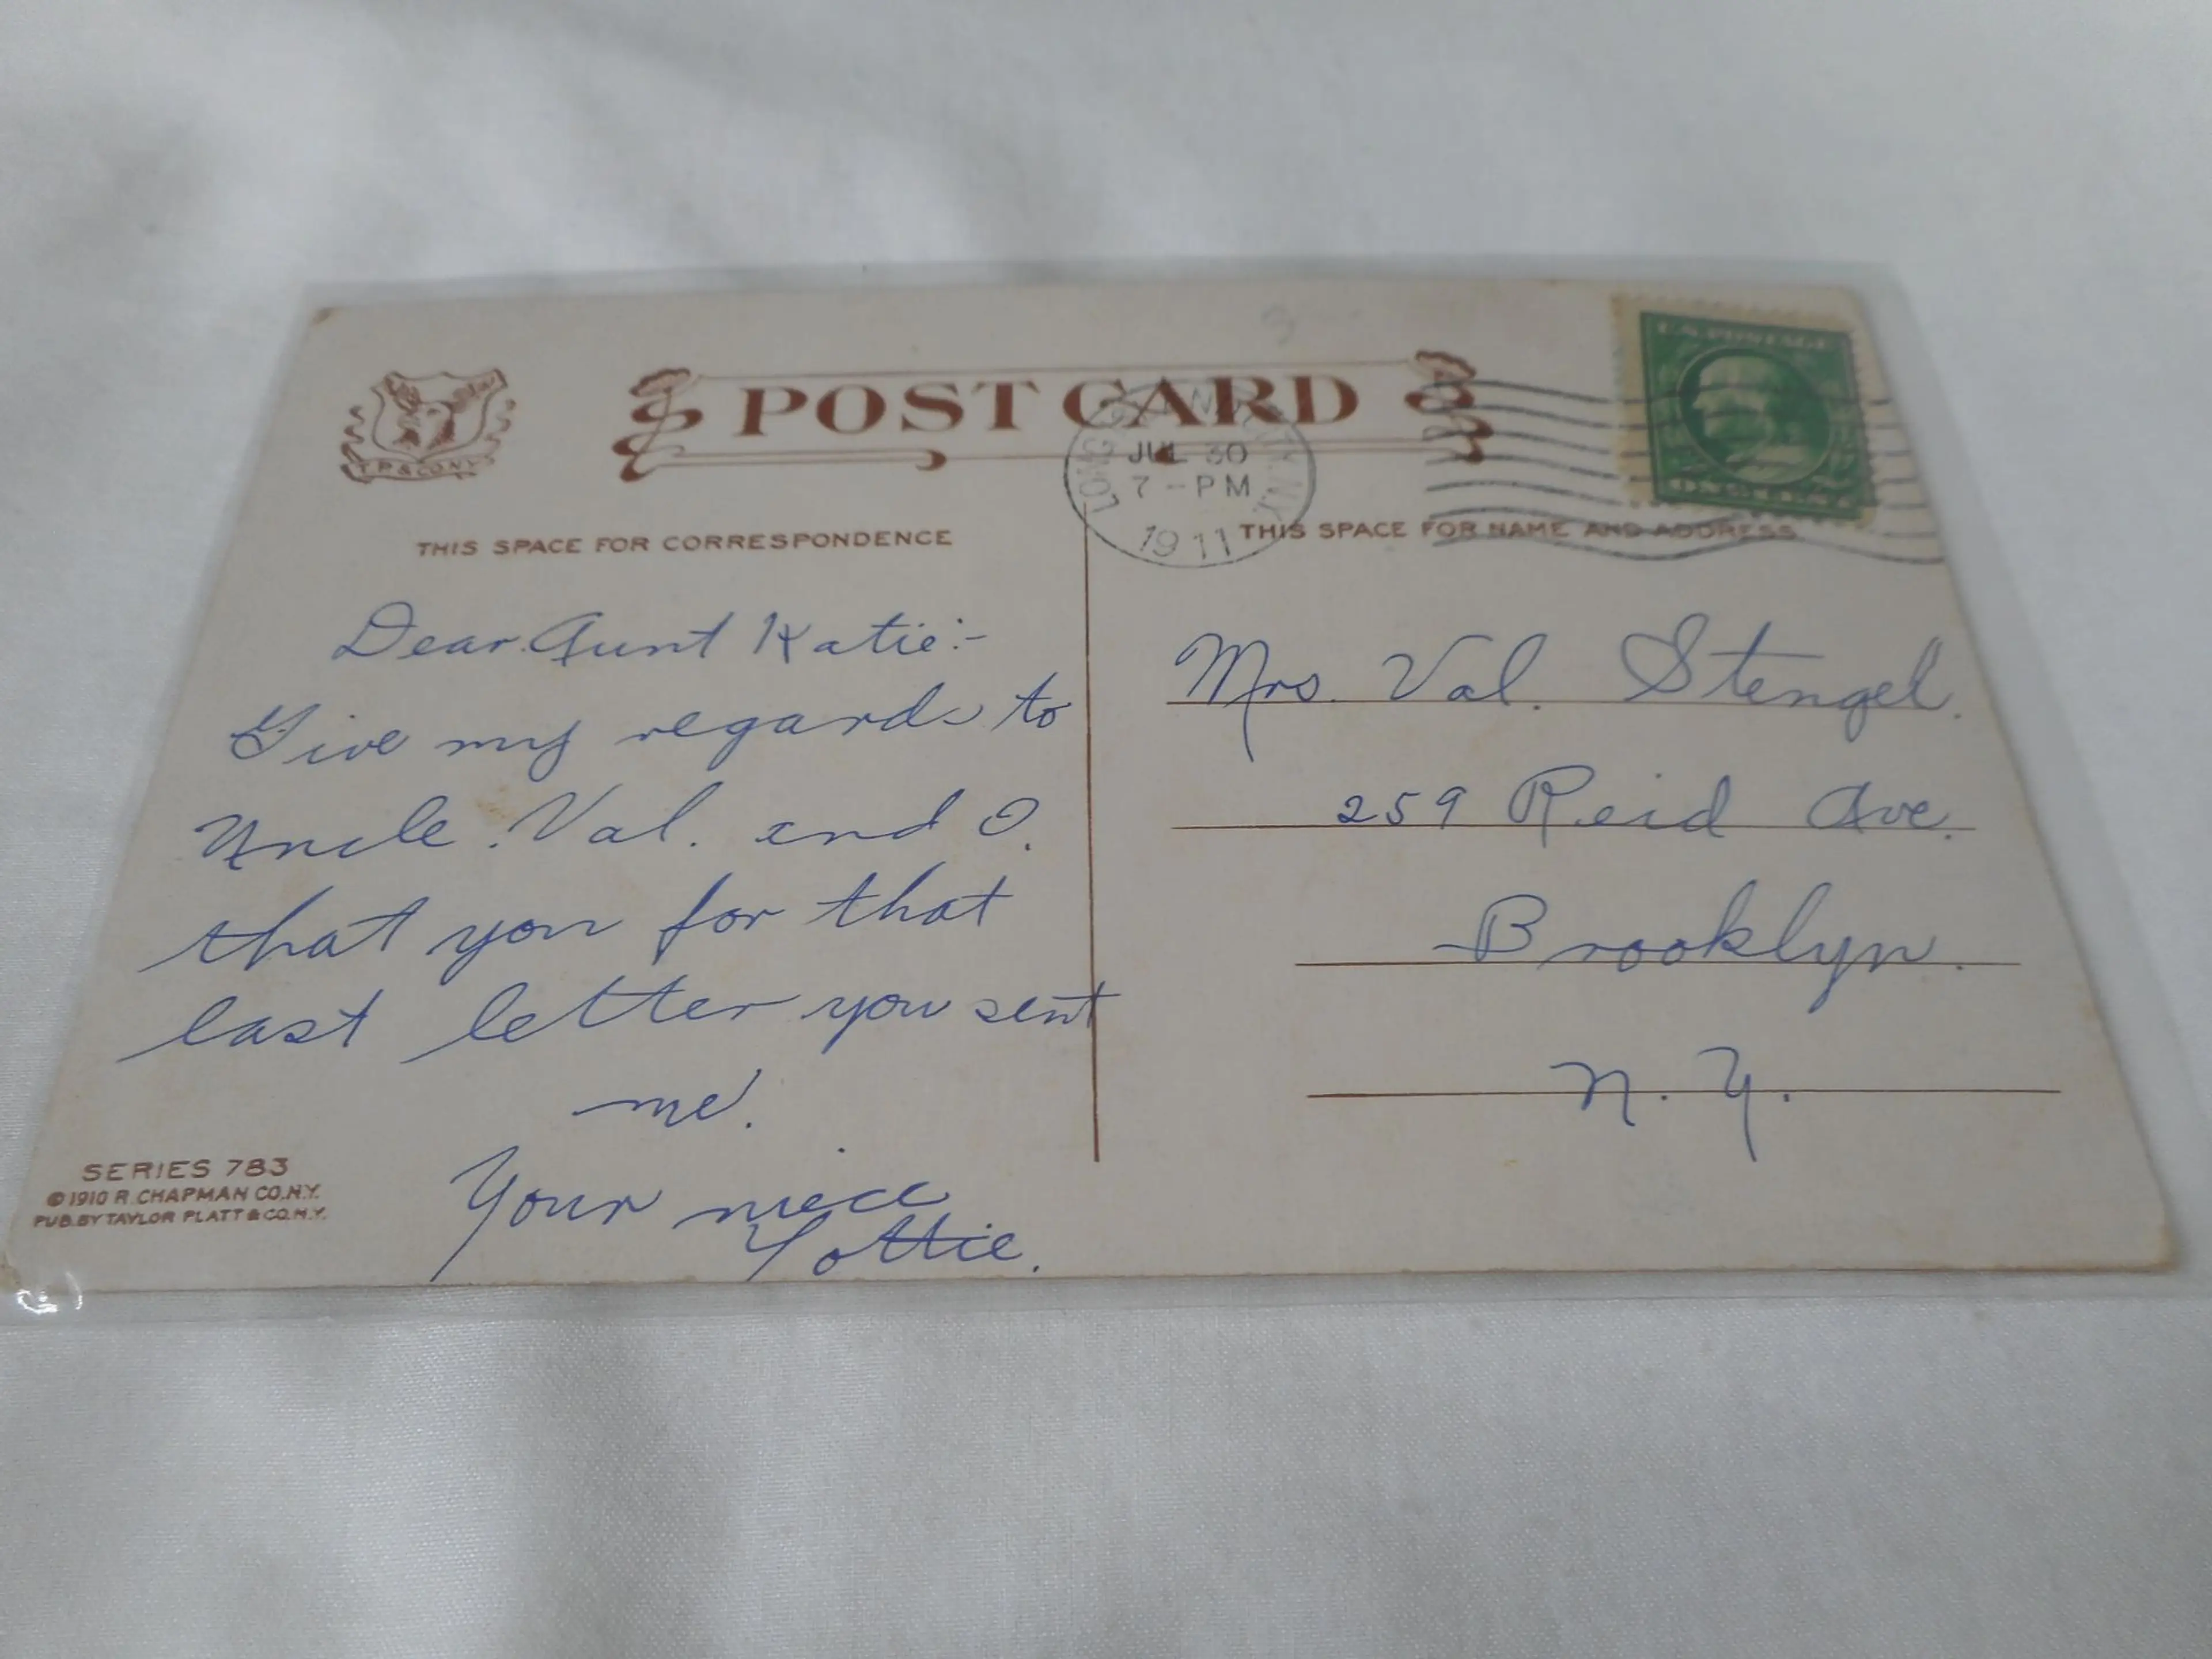 T.P.& CO.N.Y.
POST CARD
U.S. POSTAGE
ONE CENT
LONG ISLAND CITY, N.Y.
JUL 30
7-PM
1911
THIS SPACE FOR CORRESPONDENCE
THIS SPACE FOR NAME AND ADDRESS
Dear Aunt Katie:-
Give my regards to
Uncle Val. and O.
that you for that
last letter you sent
me.
Your niece
Lottie.
Mrs. Val. Stengel.
259 Reid Ave.
Brooklyn.
N.Y.
SERIES 783
©1910 R. CHAPMAN CO.N.Y.
PUB.BY TAYLOR PLATT & CO.N.Y.